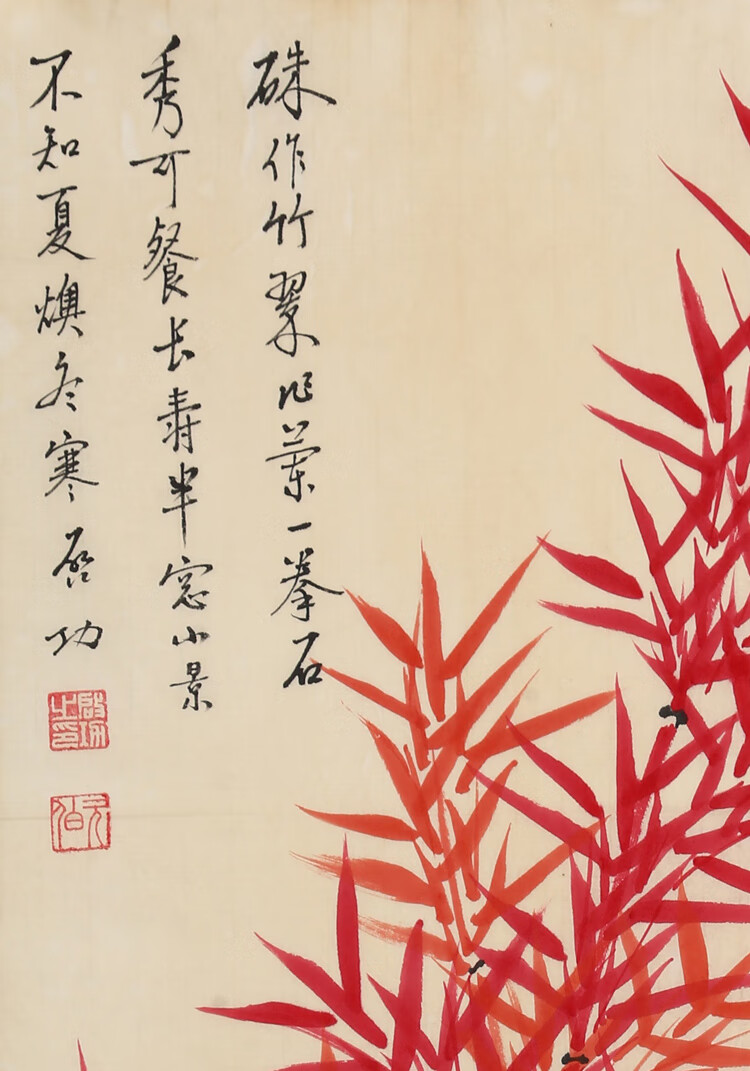 硃作竹翠作叶一拳石
秀可餐长寿半窓小景
不知夏燠冬寒启功
启功之印
元白